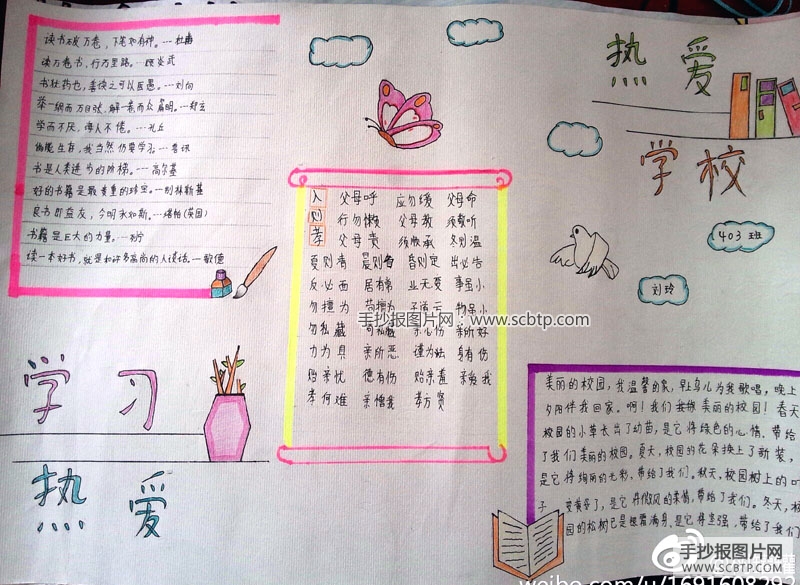 读书破万卷，下笔如有神。---杜甫
读万卷书，行万里路。---顾炎武
书犹药也，善读之可以医愚。---刘向
举一纲而万目张，解一卷而众篇明。---郑玄
学而不厌，诲人不倦。---孔丘
倘能生存，我当然仍要学习---鲁迅
书是人类进步的阶梯。---高尔基
好的书籍是最贵重的珍宝。---别林斯基
良书即益友，今明永如斯。---塔帕(英国)
书籍是巨大的力量。---列宁
读一本好书，就是和许多高尚的人谈话。---歌德
热爱
学校
403 班
刘玲
入则孝
父母呼 应勿缓 父母命
行勿懒 父母教 须敬听
父母责 须顺承 冬则温
夏则凊 晨则省 昏则定 出必告
反必面 居有常 业无变 事虽小
勿擅为 苟擅为 子道亏 物虽小
勿私藏 苟私藏 亲心伤 亲所好
力为具 亲所恶 谨为去 身有伤
贻亲忧 德有伤 贻亲羞 亲爱我
孝何难 亲憎我 孝方贤
手抄报图片网：www.scbtp.com
学习
热爱
美丽的校园，我温馨的家，早上鸟儿为我歌唱，晚上
夕阳伴我回家。啊！我们我 美丽的校园！春天
校园的小草长出了幼苗，是它将绿色的心情，带给
了我们美丽的校园。夏天，校园的花朵换上了新装，
是它将绚丽的光彩，带给了我们。秋天，校园树上的叶
子 变黄了，是它将微风的柔情，带给了我们。冬天，校
园的松树已是 满身，是它将坚强，带给了我们
手抄报图片网
WWW.SCBTP.COM
weibo.com/u/1691608297